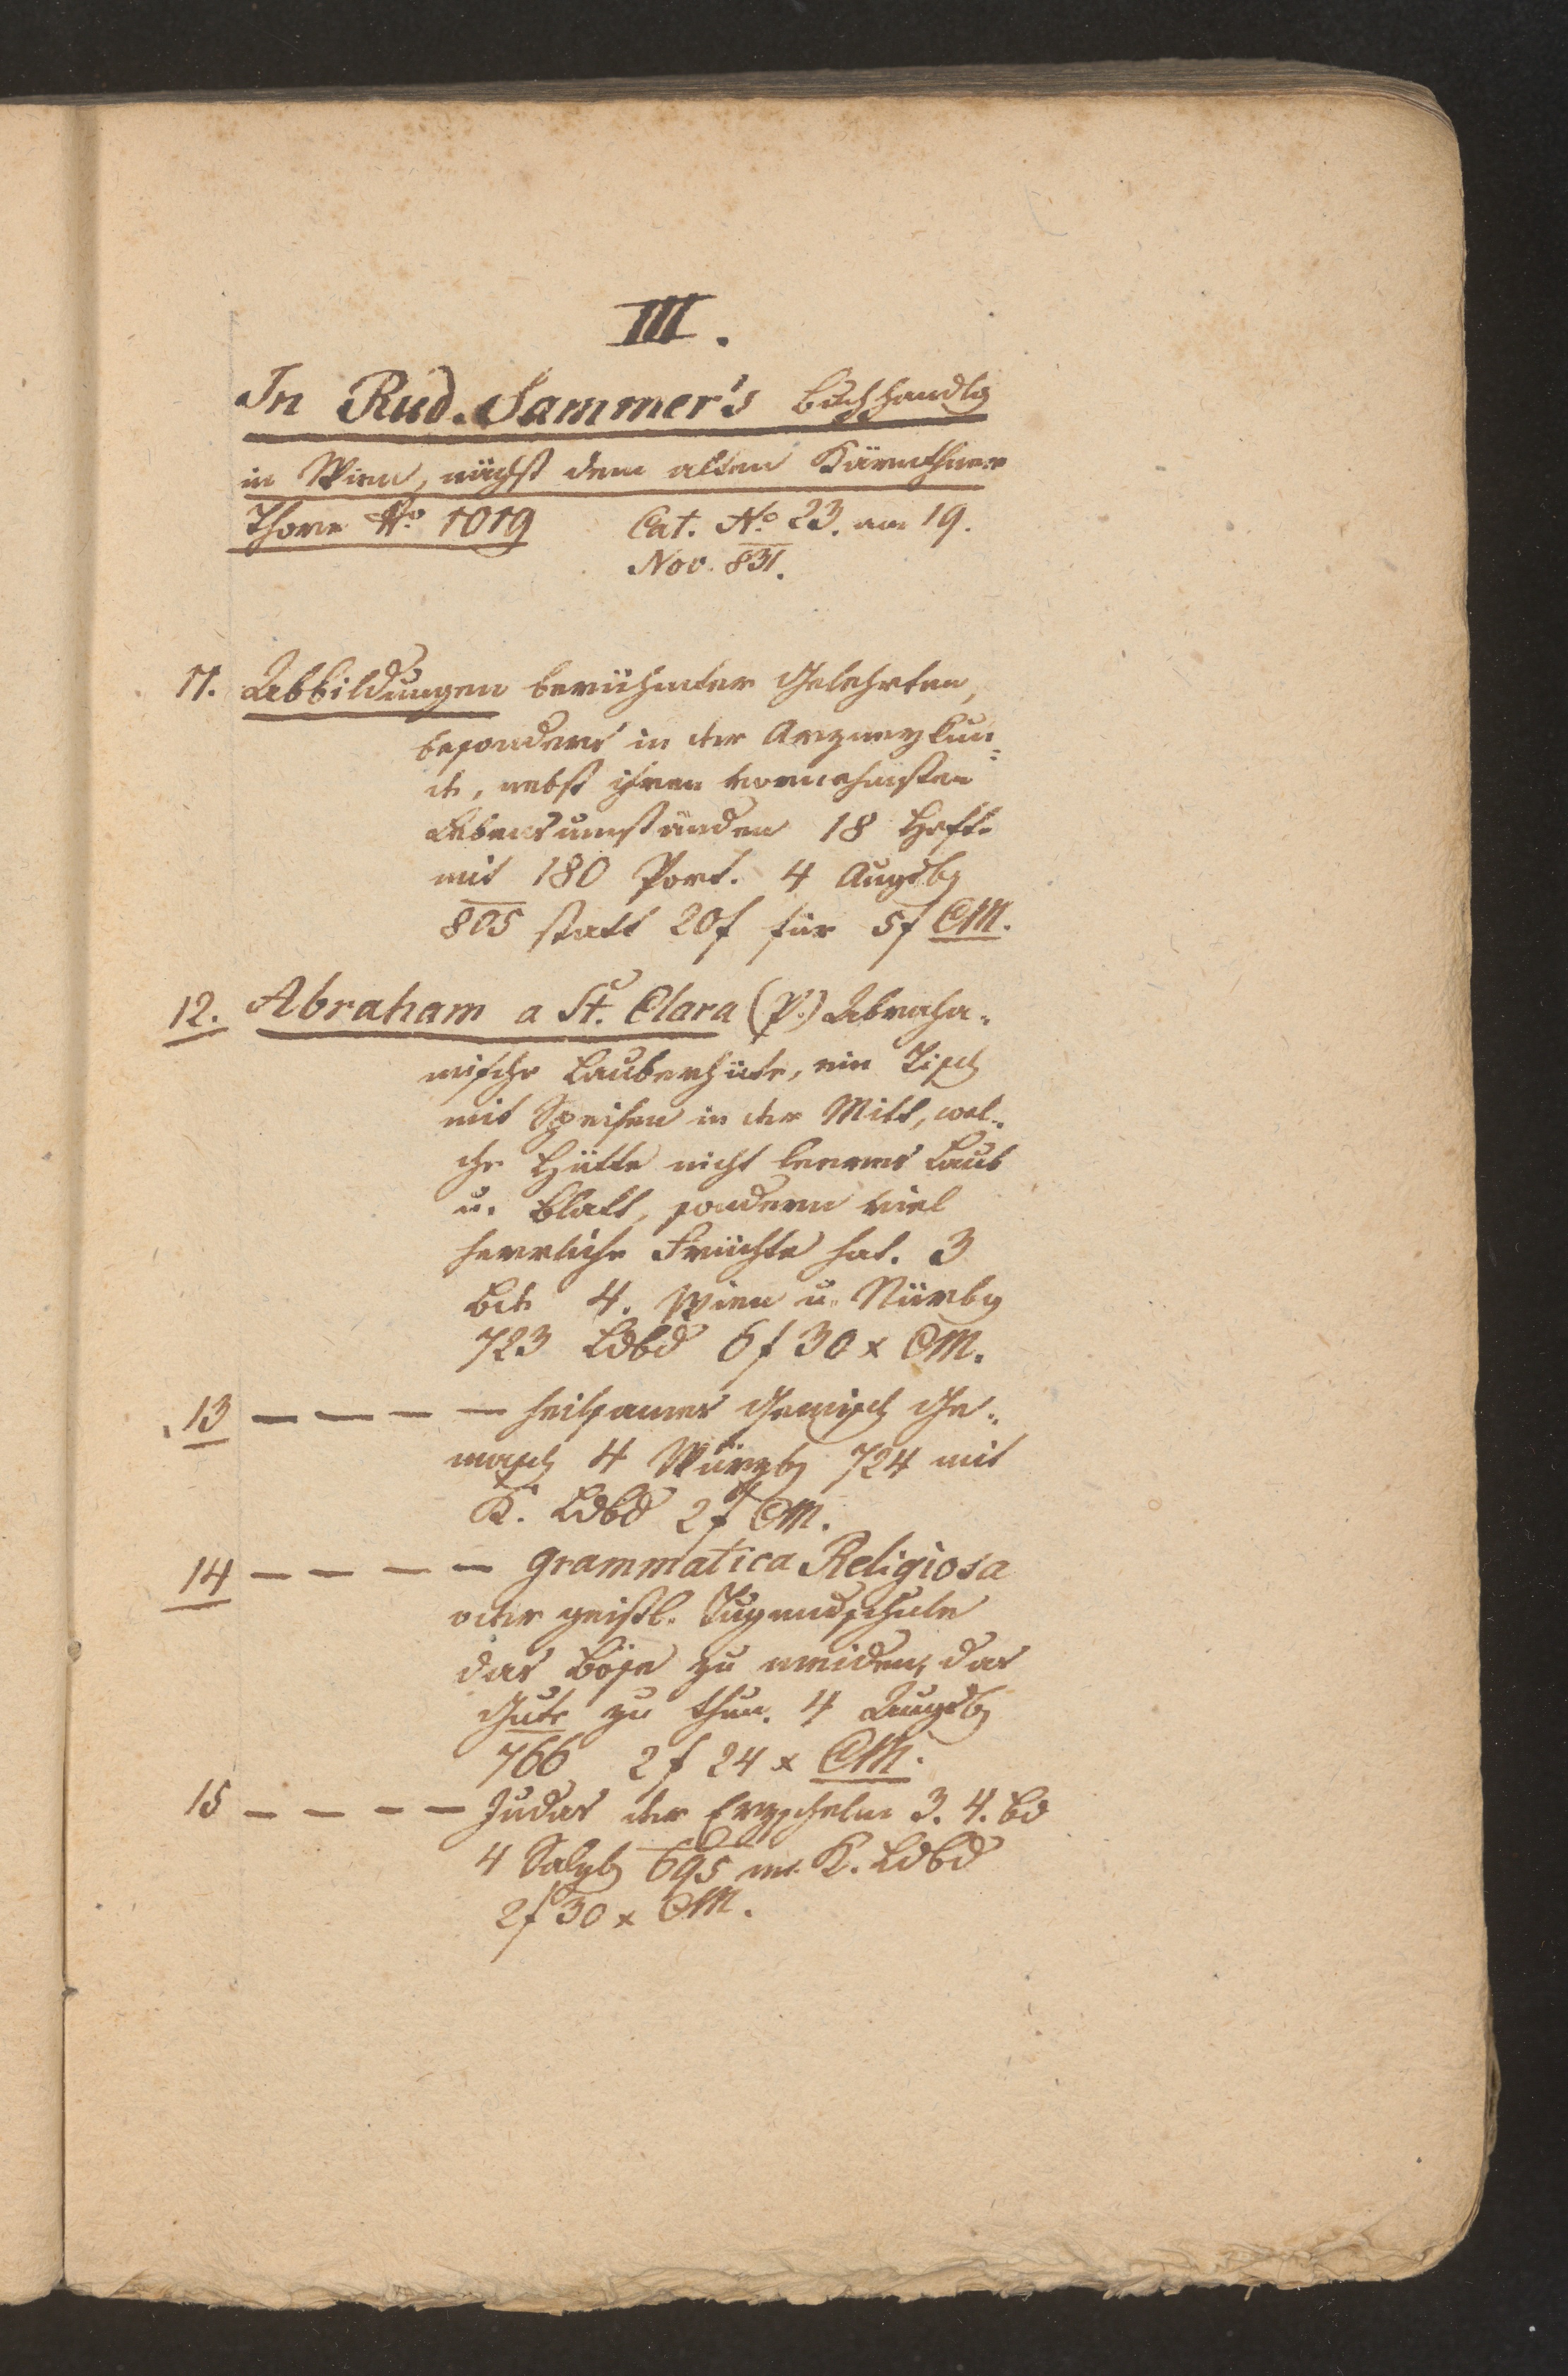 III.
In Rud. Sammer's Buchhandlg
in Wien, nächst dem alten Kärnthner
Thore No. 1019 Cat. No. 23. am 19.
Nov. 831.
11. Abbildungen berühmter Gelehrten,
besonders in der Arzneykun=
de, nebst ihren vornehmsten
Lebensumständen 18 Hefte
mit 180 Port. 4 Augsbg
805 statt 20f für 5f CM.
12. Abraham a St. Clara (P.) Abraha=
mische Lauberhütte, ein Tisch
mit Speisen in der Mitt, wel=
che Hütte nicht leeres Laub
u. Blatt, sondern viel
herrliche Früchte hat. 3
Bde 4. Wien u. Nürnbg
723 Ldbd 6f 30x CM.
13 — — — — heilsames Gemisch Ge=
masch 4 Würzbg 724 mit
K. Ldbd 2f CM.
14 — — — — Grammatica Religiosa
oder geistl. Tugendschule
das Böse zu meiden, das
Gute zu thun. 4 Augsbg
766 2f 24x CM.
15 — — — — Judas der Erzschelm 3. 4. Bd
4 Salzbg 695 m. K. Ldbd
2f 30x CM.